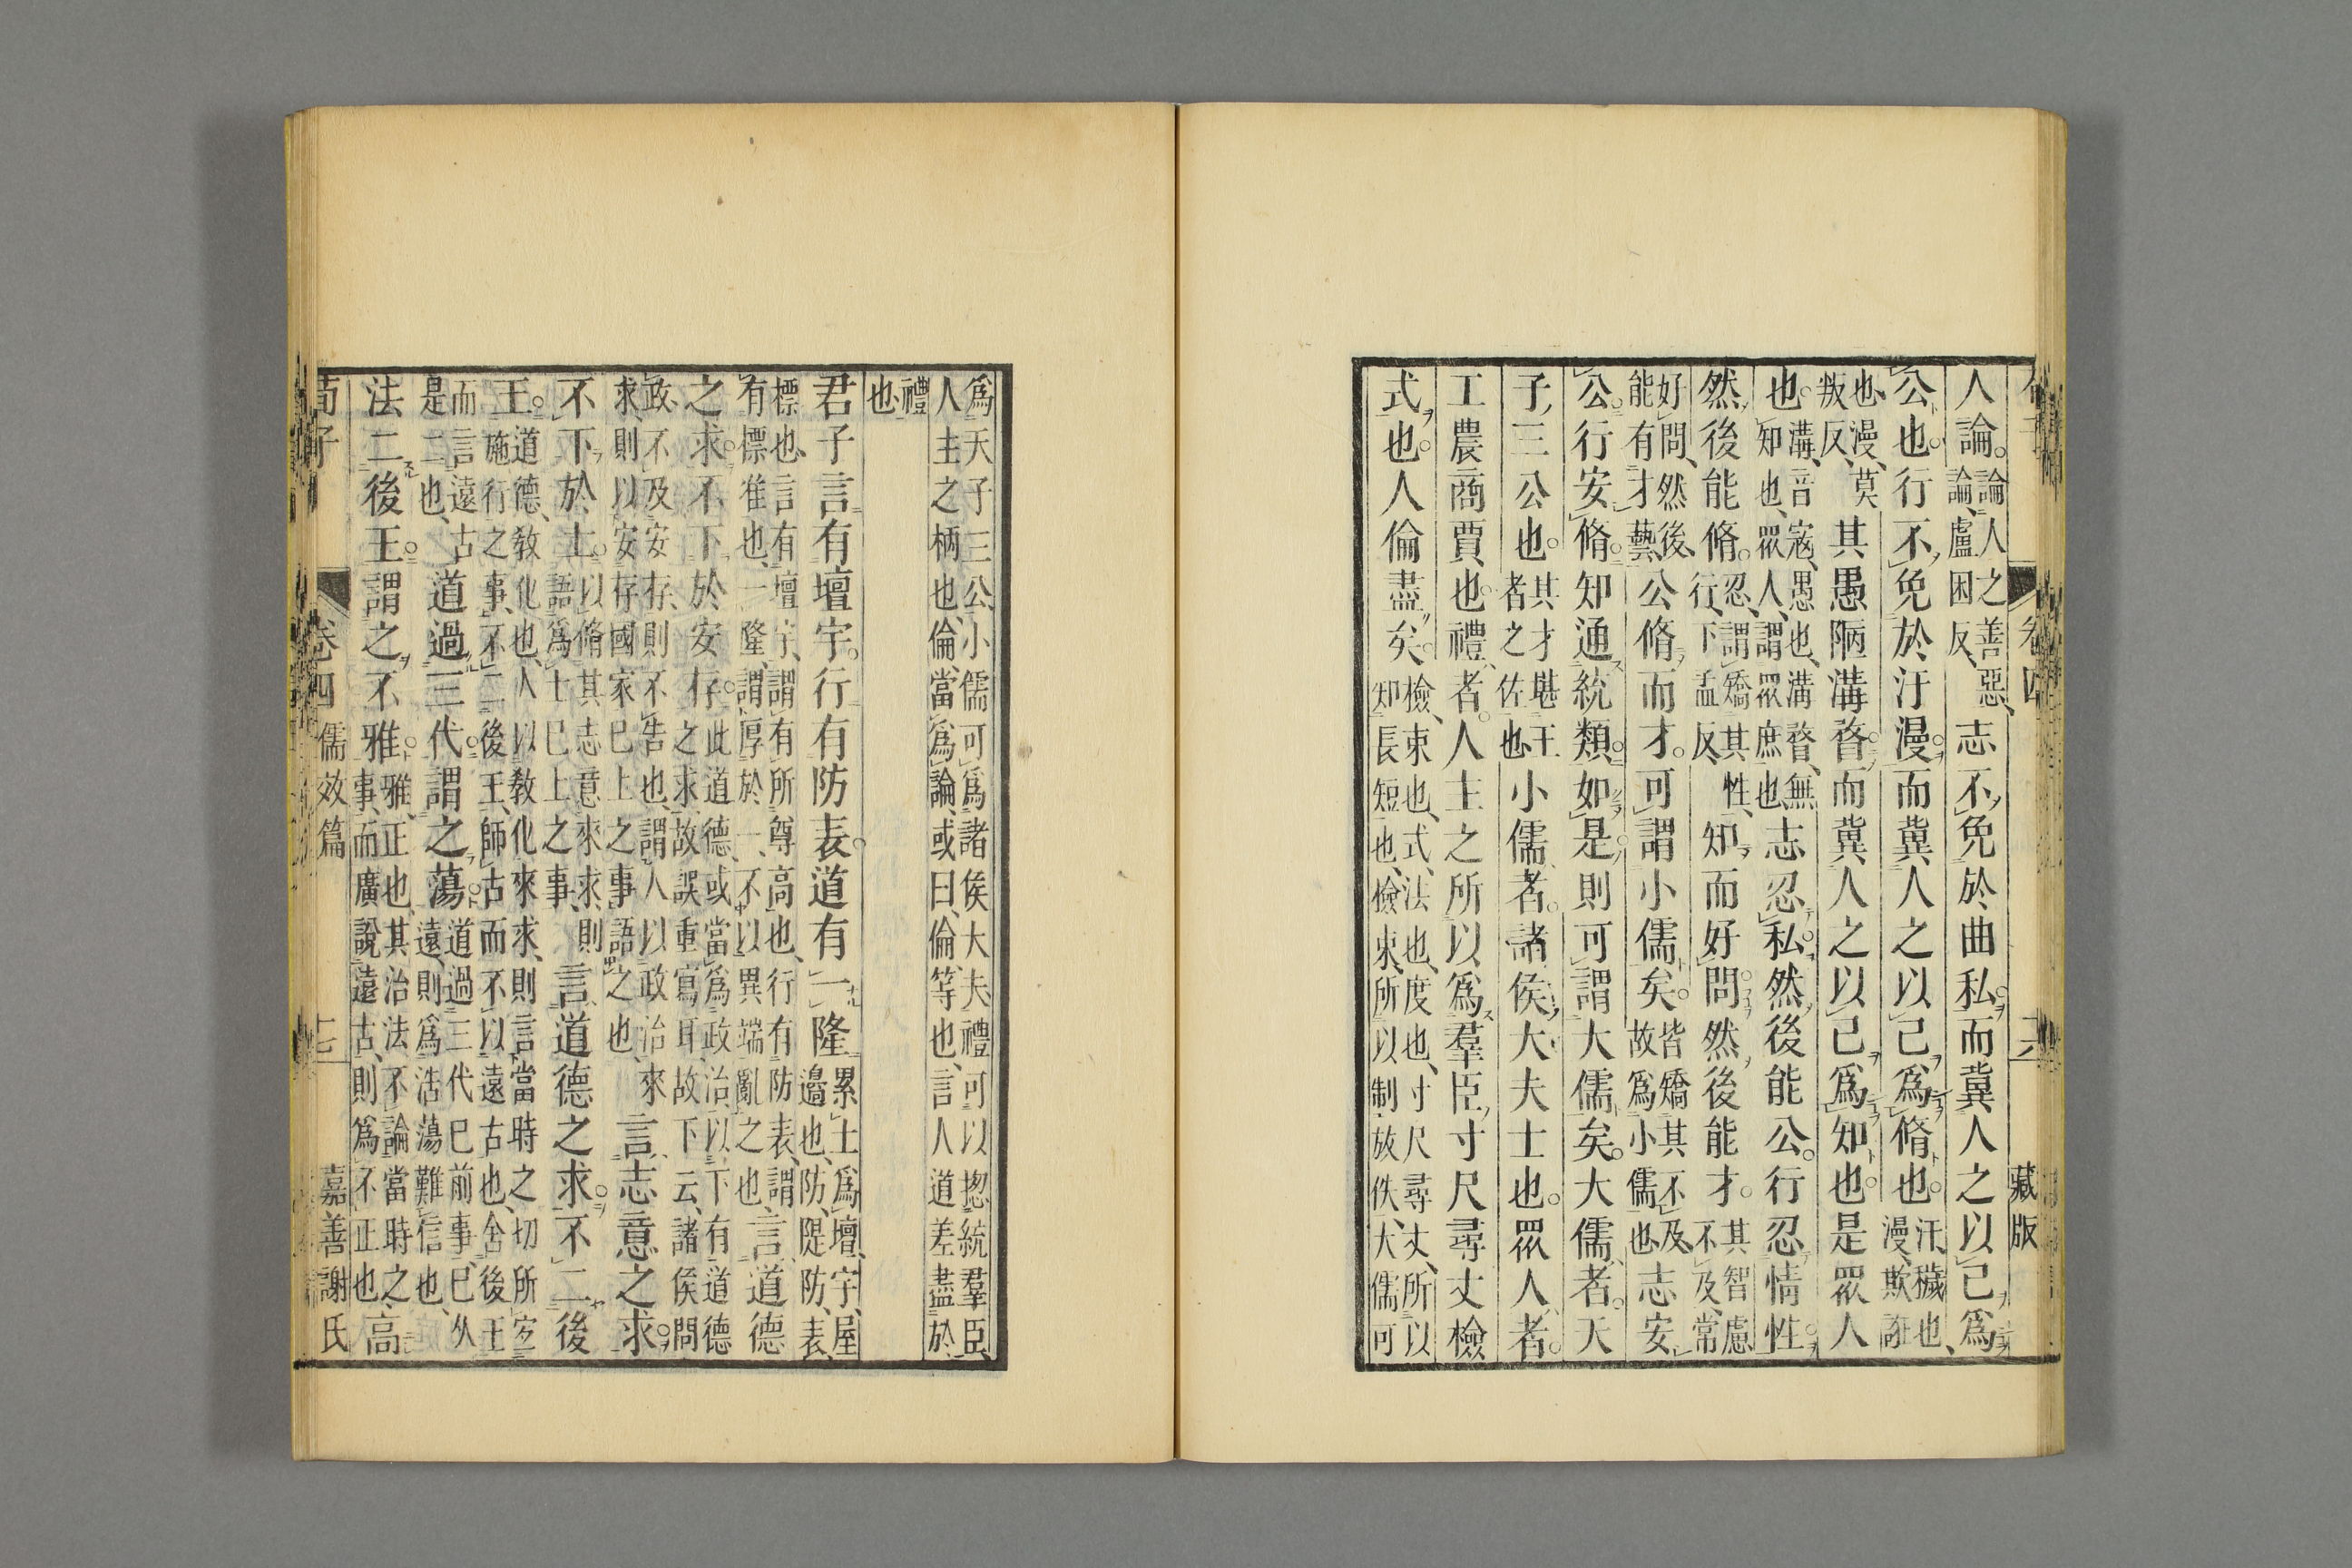 人論。論人之善惡、論、盧困反、志不免於曲私。而冀人之以己爲
公也。行不免於汙漫。而冀人之以己爲脩也。汙、穢也、漫、欺誑
也、漫、莫叛反、其愚陋溝瞀。而冀人之以己爲知也。是衆人
也。溝、音寇、愚也、溝瞀、無知也、衆人、謂衆庶也、志忍私。然後能公。行忍情性。
然後能脩。忍、謂矯其性、行、下孟反、知而好問。然後能才。其智慮不及、常
好問、然後能有才藝、公脩而才。可謂小儒矣。皆矯其不及、故爲小儒也、志安
公。行安脩。知通統類。如是。則可謂大儒矣。大儒者。天
子三公也。其才堪王者之佐也、小儒者。諸侯大夫士也。衆人者。
工農商賈也。禮者。人主之所以爲羣臣寸尺尋丈檢
式也。人倫盡矣。檢、束也、式、法也、度也、寸尺尋丈、所以知長短也、檢束、所以制放佚、大儒可
藏版
爲天子三公、小儒可爲諸侯大夫、禮可以揔統羣臣、人主之柄也、倫、當爲論、或曰、倫、等也、言人道差盡於
禮也、
君子言有壇宇。行有防表。道有一隆。累土爲壇、宇、屋邊也、防、隄防、表、
標也、言有壇宇、謂有所尊高也、行有防表、謂有標准也、一隆、謂厚於一、不以異端亂之也、言道德
之求。不下於安存。此道德或當爲政治、以下有道德之求、故誤重寫耳、故下云、諸侯問
政、不及安存、則不告也、謂人以政治來求、則以安存國家已上之事語之也、言志意之求。
不下於士。以脩其志意來求、則語爲士已上之事、言道德之求。不二後
王。道德、教化也、人以教化來求、則言當時之切所宜施行之事、不二後王、師古而不以遠古也、舍後王
而言遠古是二也、道過三代。謂之蕩。道過三代已前事、已久遠、則爲浩蕩難信也、
法二後王。謂之不雅。雅、正也、其治法、不論當時之事、而廣說遠古、則爲不正也、高
荀子 卷四 儒效篇 十七 嘉善謝氏